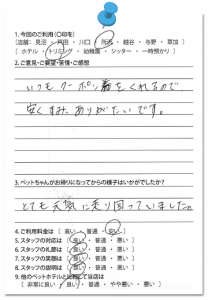 1.今回のご利用(○印を)
[店舗: 見沼 ・ 戸田 ・ 川口 ・ 所沢 ・ 越谷 ・ 与野 ・ 草加 ]
[ ホテル ・ トリミング ・ 幼稚園 ・ シッター ・ 一時預かり ]
2.ご意見・ご要望・苦情・ご感想
いつもクーポン券をくれるので、
安くすみ、ありがたいです。
3.ペットちゃんがお帰りになってからの様子はいかがでしたか？
とても元気に走り回っていました。
4.ご利用料金は [ 高い ・ 普通 ・ 安い ]
5.スタッフの対応は [ 良い ・ 普通 ・ 悪い ]
6.スタッフの礼節は [ 良い ・ 普通 ・ 悪い ]
7.スタッフの笑顔は [ 良い ・ 普通 ・ 悪い ]
8.スタッフの説明は [ 良い ・ 普通 ・ 悪い ]
9.他のペットホテルと比較して当店は
[ 非常に良い ・ 良い ・ 普通 ・ やや悪い ・ 悪い ]